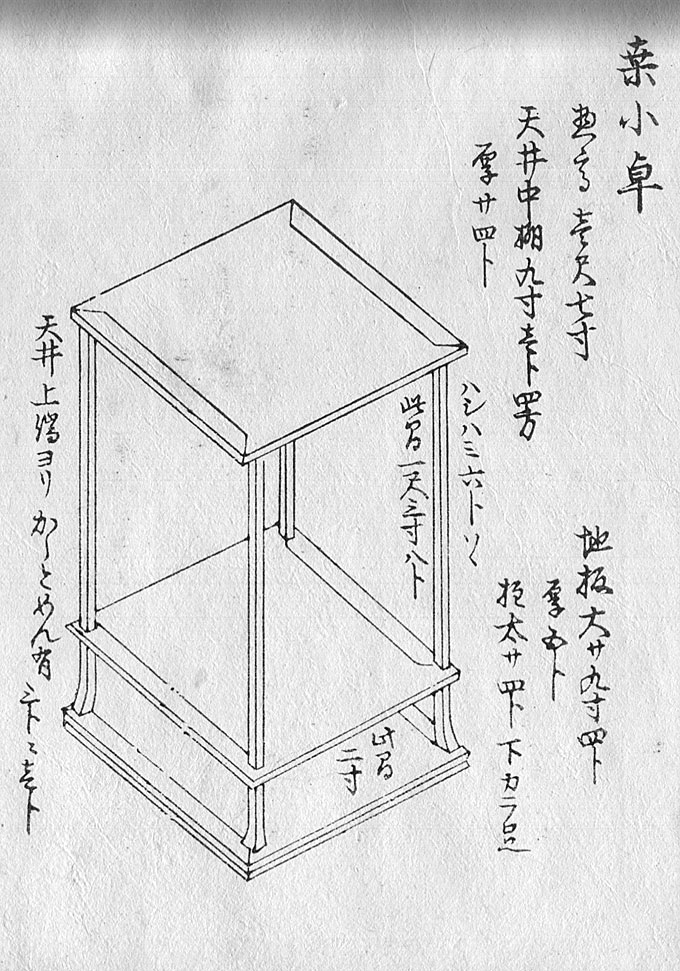 桒小卓
惣高 壱尺七寸
天井中棚九寸壱卜四方
厚サ四卜
ハシハミ六卜ツヽ
此間一尺三寸八卜
地板大サ九寸四卜
厚五卜
柱太サ四卜 下カニ足
此間
二寸
天井上端ヨリ 有 三卜ニ壱卜